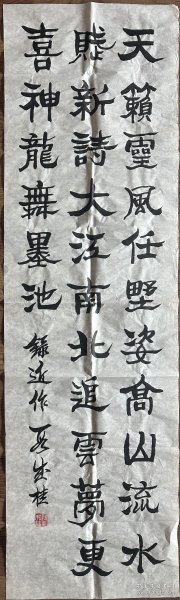 天籟靈風任野姿高山流水
賦新詩大江南北追雲夢更
喜神龍舞墨池
錄近作